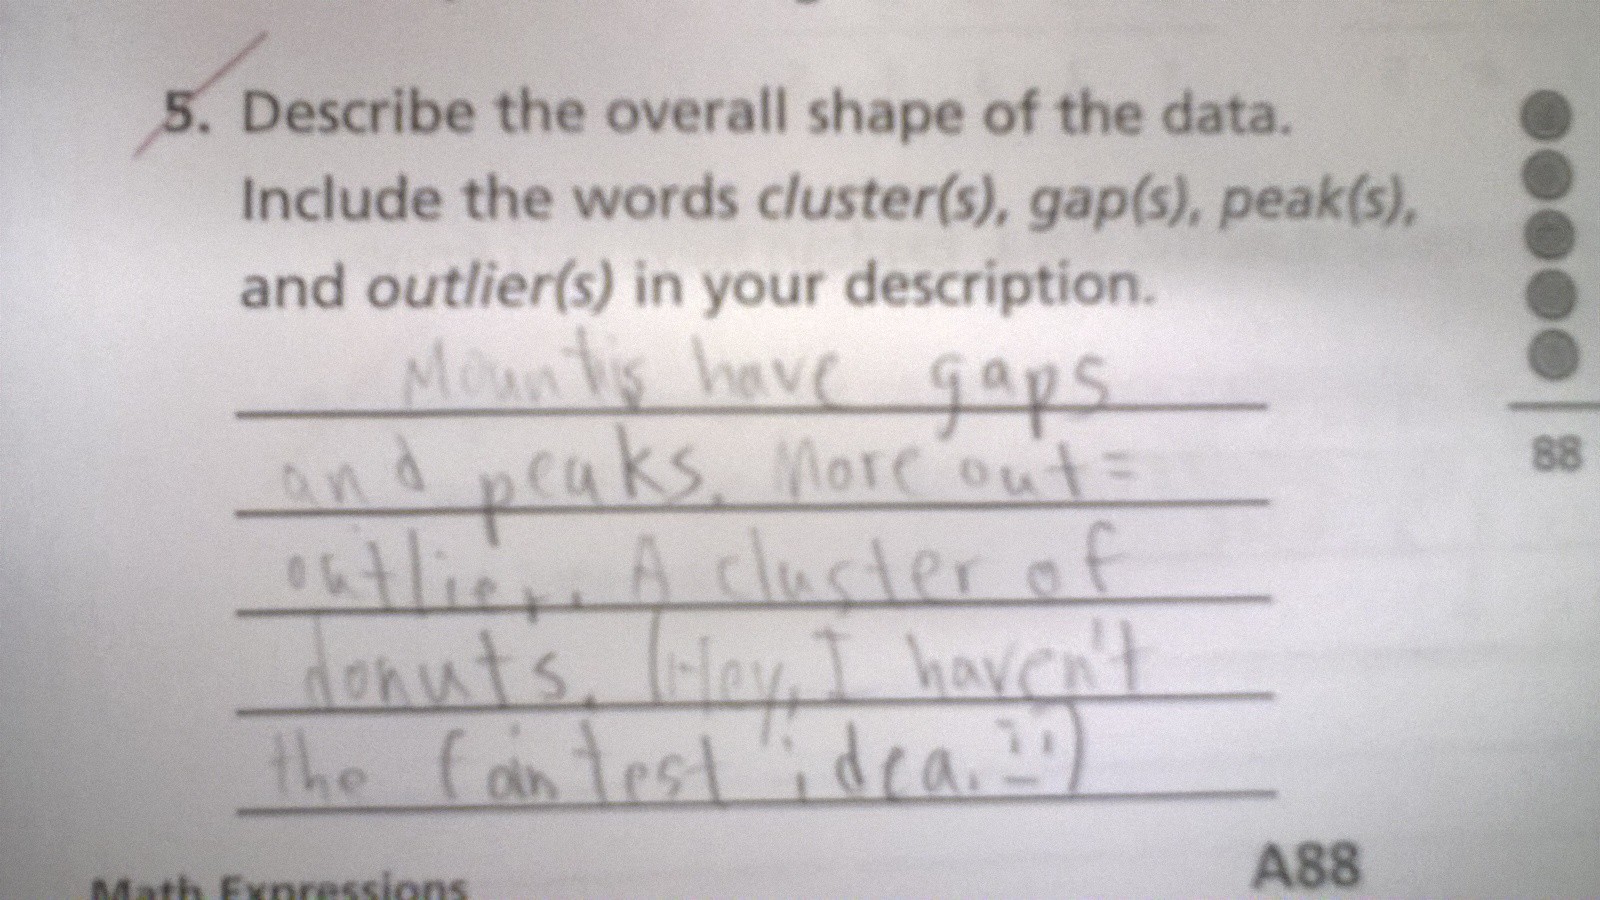 5. Describe the overall shape of the data.
Include the words cluster(s), gap(s), peak(s),
and outlier(s) in your description.
Mountis have gaps
and peaks. More out=
outlier. A cluster of
donuts. (Hey, I haven't
the faintest idea. :-)
88
Math Expressions
A88